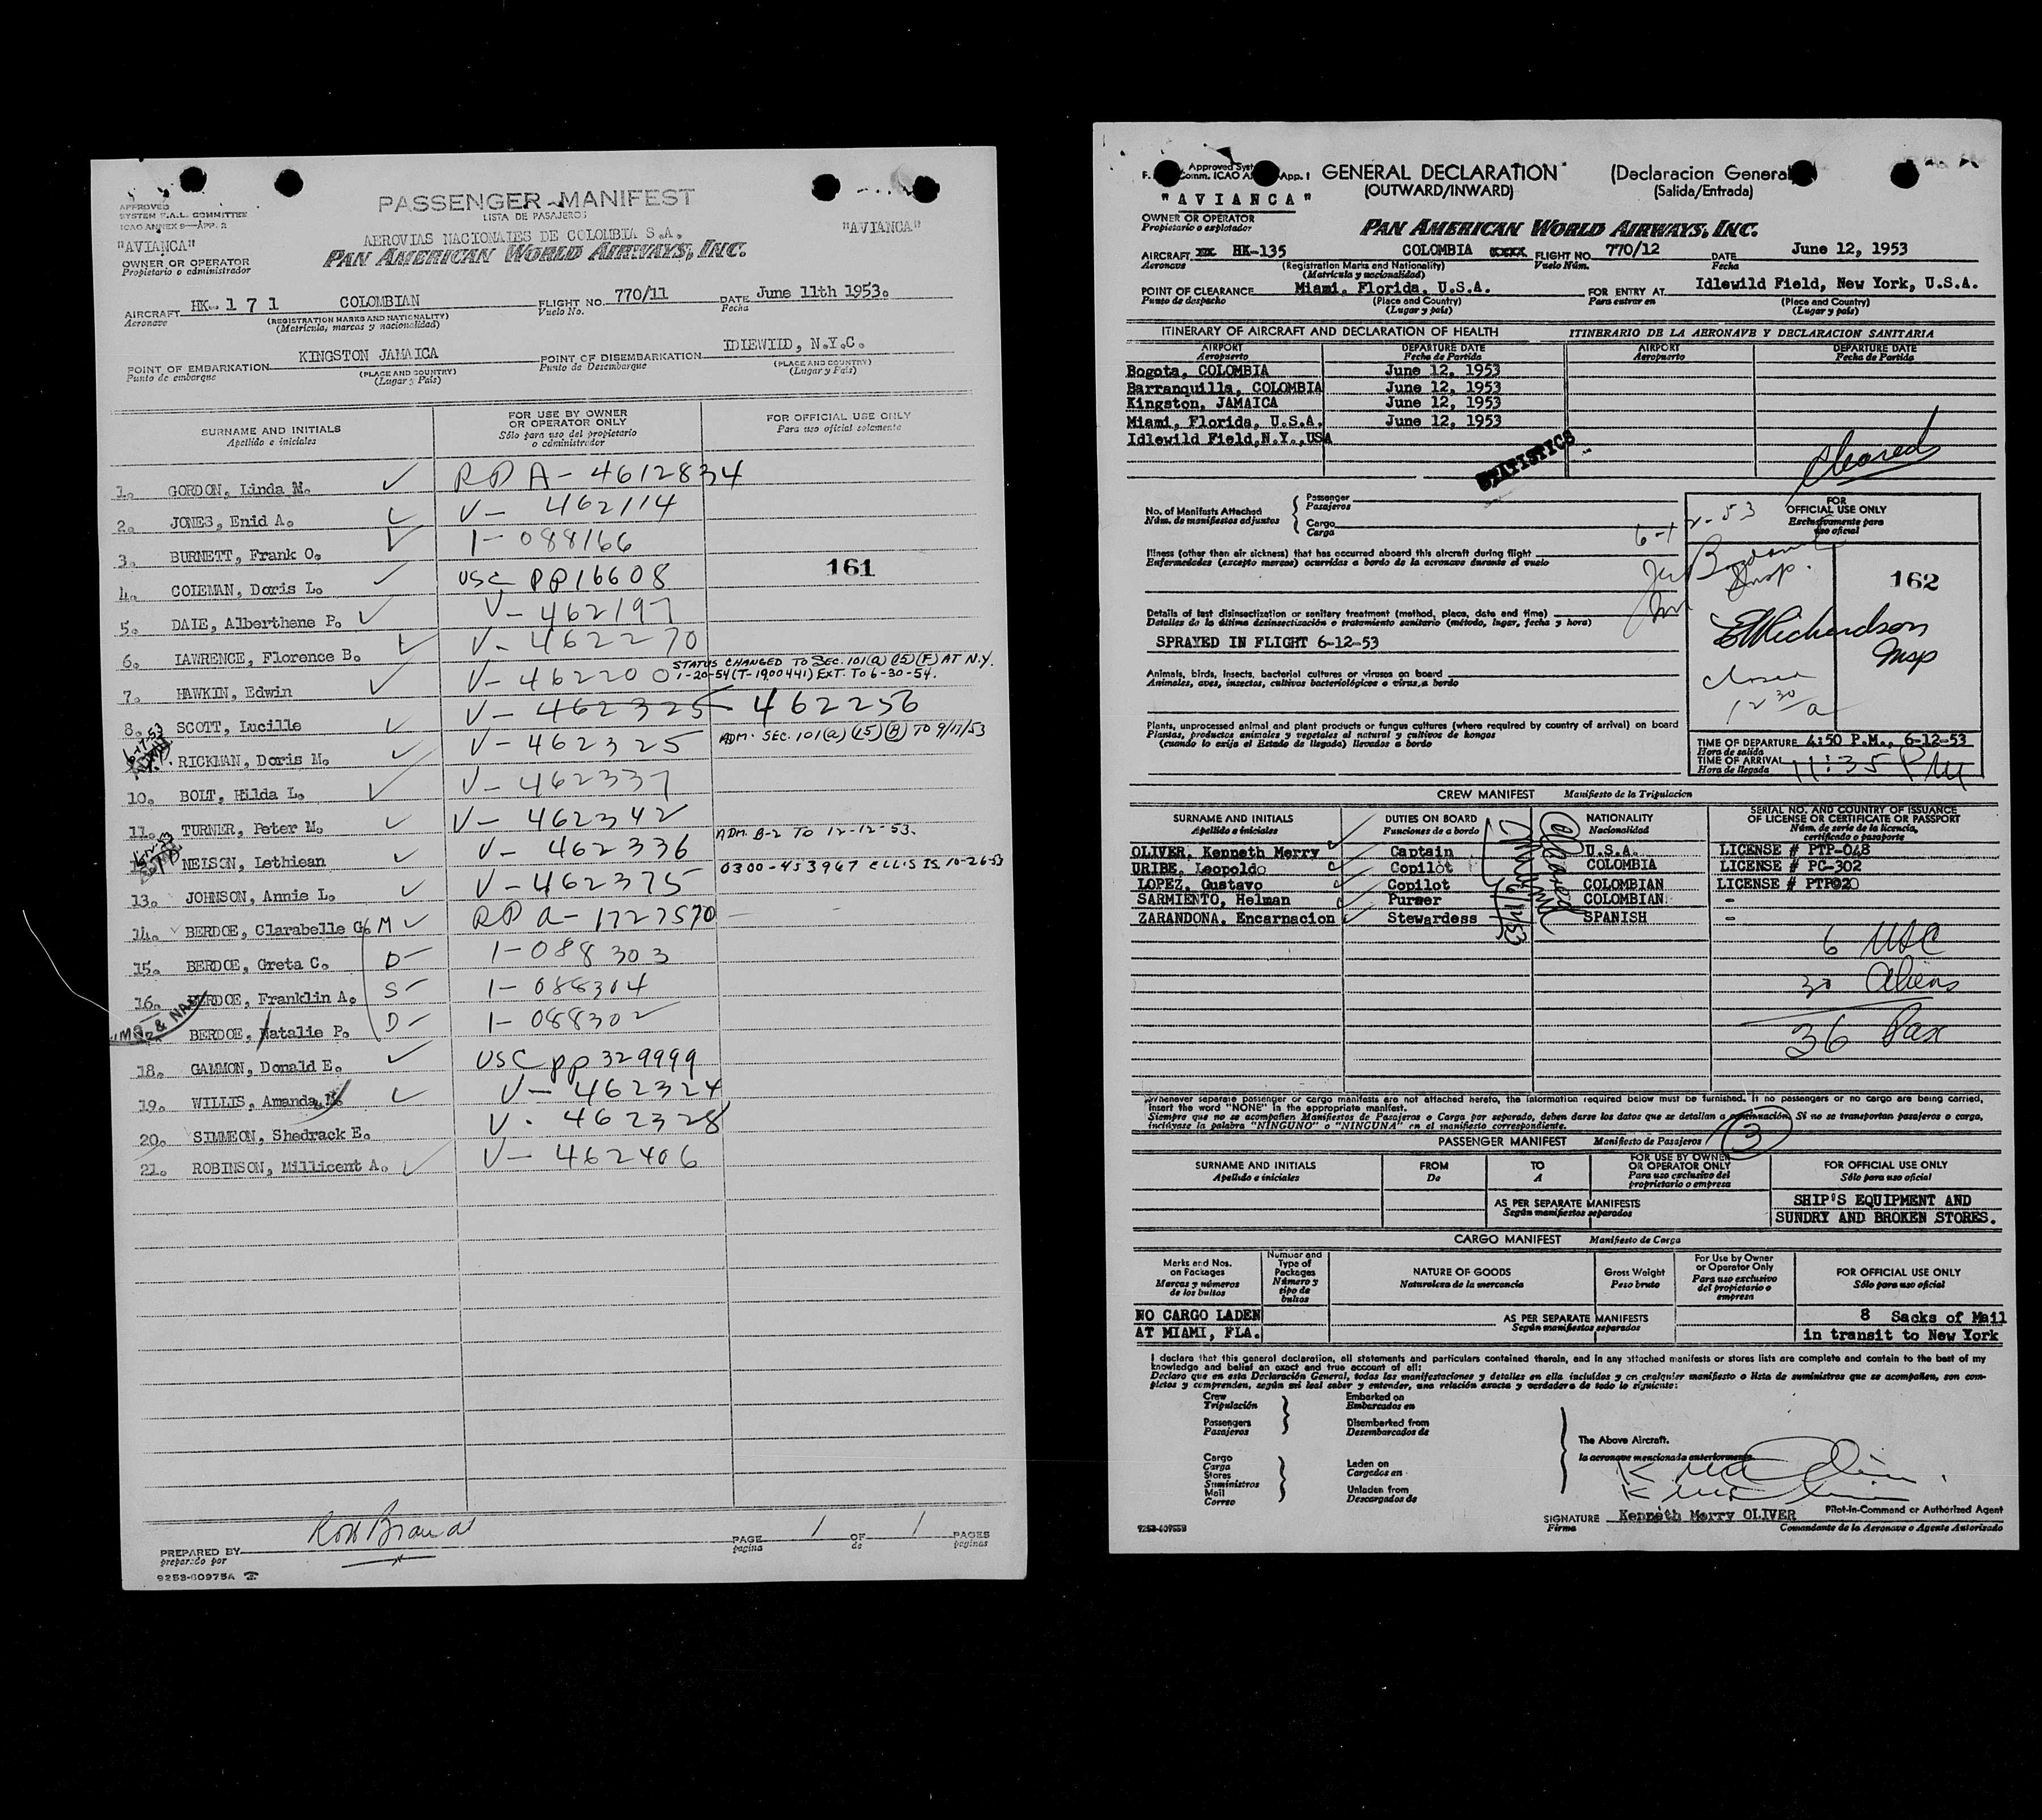 APPROVED
SYSTEM F.A.L. COMMITTEE
ICAO ANNEX 9—APP. 2
PASSENGER MANIFEST
LISTA DE PASAJEROS
"AVIANCA"
"AVIANCA"
AEROVIAS NACIONALES DE COLOMBIA S.A.
PAN AMERICAN WORLD AIRWAYS, INC.
OWNER OR OPERATOR
Propietario o administrador
AIRCRAFT HK- 1 7 1 COLOMBIAN FLIGHT NO. 770/11 DATE June 11th 1953.
Aeronave (REGISTRATION MARKS AND NATIONALITY) Vuelo No. Fecha
(Matricula, marcas y nacionalidad)
POINT OF EMBARKATION KINGSTON JAMAICA POINT OF DISEMBARKATION IDLEWILD, N.Y.C.
Punto de embarque (PLACE AND COUNTRY) Punto de Desembarque (PLACE AND COUNTRY)
(Lugar y País) (Lugar y País)
SURNAME AND INITIALS FOR USE BY OWNER OR OPERATOR ONLY FOR OFFICIAL USE ONLY
Apellido e iniciales Sólo para uso del propietario o administrador Para uso oficial solamente
1. GORDON, Linda M. ✓ RP A-4612834
2. JONES, Enid A. ✓ V- 462114
3. BURNETT, Frank O. ✓ 1-088166
161
4. COLEMAN, Doris L. ✓ USC PP16608
5. DALE, Alberthene P. ✓ V-462197
6. LAWRENCE, Florence B. ✓ V-462270
7. HAWKIN, Edwin ✓ V-462200 STATUS CHANGED TO SEC. 101(a)(15)(F) AT N.Y.
1-20-54 (T-1900441) EXT. TO 6-30-54.
8. SCOTT, Lucille ✓ V-462325 462256
RICKMAN, Doris M. ✓ V-462325 ADM. SEC. 101(a)(15)(B) TO 9/17/53
10. BOLT, Hilda L. ✓ V-462337
11. TURNER, Peter M. ✓ V-462342
NELSON, Lethiean ✓ V- 462336 ADM. B-2 TO 12-12-53.
13. JOHNSON, Annie L. ✓ V-462375 0300-453967 ELLIS IS. 10-26-53
14. BERDOE, Clarabelle G. M ✓ RP A-1727570
15. BERDOE, Greta C. D- 1-088303
16. BERDOE, Franklin A. S- 1-088304
BERDOE, Natalie P. D- 1-088302
& NAT
18. GAMMON, Donald E. ✓ USC PP 329999
19. WILLIS, Amanda M. ✓ V-462324
20. SIMMEON, Shedrack E. V-462328
21. ROBINSON, Millicent A. ✓ V-462406
PREPARED BY
preparado por
PAGE 1 OF 1 PAGES
pagina de paginas
9253-60975A
F. Approved Syst
Comm. ICAO A App. 1
GENERAL DECLARATION (Declaracion General
(OUTWARD/INWARD) (Salida/Entrada)
"AVIANCA"
OWNER OR OPERATOR
Propietario o explotador
PAN AMERICAN WORLD AIRWAYS, INC.
AIRCRAFT HK-135 COLOMBIA FLIGHT NO. 770/12 DATE June 12, 1953
Aeronave (Registration Marks and Nationality) Vuelo Núm. Fecha
(Matrícula y nacionalidad)
POINT OF CLEARANCE Miami, Florida, U.S.A. FOR ENTRY AT Idlewild Field, New York, U.S.A.
Punto de despacho (Place and Country) Para entrar en (Place and Country)
(Lugar y país) (Lugar y país)
ITINERARY OF AIRCRAFT AND DECLARATION OF HEALTH ITINERARIO DE LA AERONAVE Y DECLARACION SANITARIA
AIRPORT DEPARTURE DATE AIRPORT DEPARTURE DATE
Aeropuerto Fecha de Partida Aeropuerto Fecha de Partida
Bogota, COLOMBIA June 12, 1953
Barranquilla, COLOMBIA June 12, 1953
Kingston, JAMAICA June 12, 1953
Miami, Florida, U.S.A. June 12, 1953
Idlewild Field,N.Y.,USA
STATISTICS
Cleared
No. of Manifests Attached
Núm. de manifiestos adjuntos
Passenger
Pasajeros
Cargo
Carga
FOR
OFFICIAL USE ONLY
Exclusivamente para
uso oficial
6-12-53
Insp.
162
Illness (other than air sickness) that has occurred aboard this aircraft during flight
Enfermedades (excepto mareos) ocurridas a bordo de la aeronave durante el vuelo
Details of last disinsectization or sanitary treatment (method, place, date and time)
Detalles de la última desinsectización o tratamiento sanitario (método, lugar, fecha y hora)
SPRAYED IN FLIGHT 6-12-53
Richardson
Insp
Animals, birds, insects, bacterial cultures or viruses on board
Animales, aves, insectos, cultivos bacteriológicos o virus, a bordo
Plants, unprocessed animal and plant products or fungus cultures (where required by country of arrival) on board
Plantas, productos animales y vegetales al natural y cultivos de hongos
(cuando lo exija el Estado de llegada) llevados a bordo
TIME OF DEPARTURE 4:50 P.M., 6-12-53
Hora de salida
TIME OF ARRIVAL 11:35 PM
Hora de llegada
CREW MANIFEST Manifiesto de la Tripulacion
SURNAME AND INITIALS DUTIES ON BOARD NATIONALITY SERIAL NO. AND COUNTRY OF ISSUANCE OF LICENSE OR CERTIFICATE OR PASSPORT
Apellido e iniciales Funciones de a bordo Nacionalidad Núm. de serie de la licencia, certificado o pasaporte
OLIVER, Kenneth Merry Captain U.S.A. LICENSE # PTP-048
URIBE, Leopoldo Copilot COLOMBIA LICENSE # PC-302
LOPEZ, Gustavo Copilot COLOMBIAN LICENSE # PTP020
SARMIENTO, Helman Purser COLOMBIAN -
ZARANDONA, Encarnacion Stewardess SPANISH -
6/12/53
6 USC
30 Aliens
36 Pax
Whenever separate passenger or cargo manifests are not attached hereto, the information required below must be furnished. If no passengers or no cargo are being carried,
insert the word "NONE" in the appropriate manifest.
Siempre que no se acompañen Manifiestos de Pasajeros o Carga por separado, deben darse los datos que se detallan a continuación. Si no se transportan pasajeros o carga,
inclúyase la palabra "NINGUNO" o "NINGUNA" en el manifiesto correspondiente.
PASSENGER MANIFEST Manifiesto de Pasajeros 3
SURNAME AND INITIALS FROM TO FOR USE BY OWNER OR OPERATOR ONLY FOR OFFICIAL USE ONLY
Apellido e iniciales De A Para uso exclusivo del propietario o empresa Sólo para uso oficial
AS PER SEPARATE MANIFESTS
Según manifiestos separados
SHIP'S EQUIPMENT AND
SUNDRY AND BROKEN STORES.
CARGO MANIFEST Manifiesto de Carga
Marks and Nos. on Packages Number and Type of Packages NATURE OF GOODS Gross Weight For Use by Owner or Operator Only FOR OFFICIAL USE ONLY
Marcas y números de los bultos Número y tipo de bultos Naturaleza de la mercancía Peso bruto Para uso exclusivo del propietario o empresa Sólo para uso oficial
NO CARGO LADEN AS PER SEPARATE MANIFESTS 8 Sacks of Mail
AT MIAMI, FLA. Según manifiestos separados in transit to New York
I declare that this general declaration, all statements and particulars contained therein, and in any attached manifests or stores lists are complete and contain to the best of my
knowledge and belief an exact and true account of all:
Declaro que en esta Declaración General, todas las manifestaciones y detalles en ella incluidos y en cualquier manifiesto o lista de suministros que se acompañen, son com-
pletos y comprenden, según mi leal saber y entender, una relación exacta y verdadera de todo lo siguiente:
Crew Embarked on
Tripulación Embarcados en
Passengers Disembarked from
Pasajeros Desembarcados de
The Above Aircraft.
la aeronave mencionada anteriormente
Cargo Laden on
Carga Cargados en
Stores
Suministros Unladen from
Mail Descargados de
Correo
SIGNATURE Kenneth Merry OLIVER Pilot-in-Command or Authorized Agent
Firma Comandante de la Aeronave o Agente Autorizado